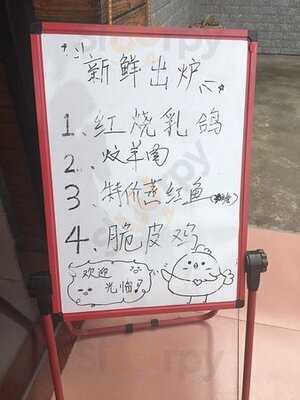 新鲜出炉
1、红烧乳鸽
2、炆羊肉
3、特价蒸红鱼
4、脆皮鸡
欢迎
光临